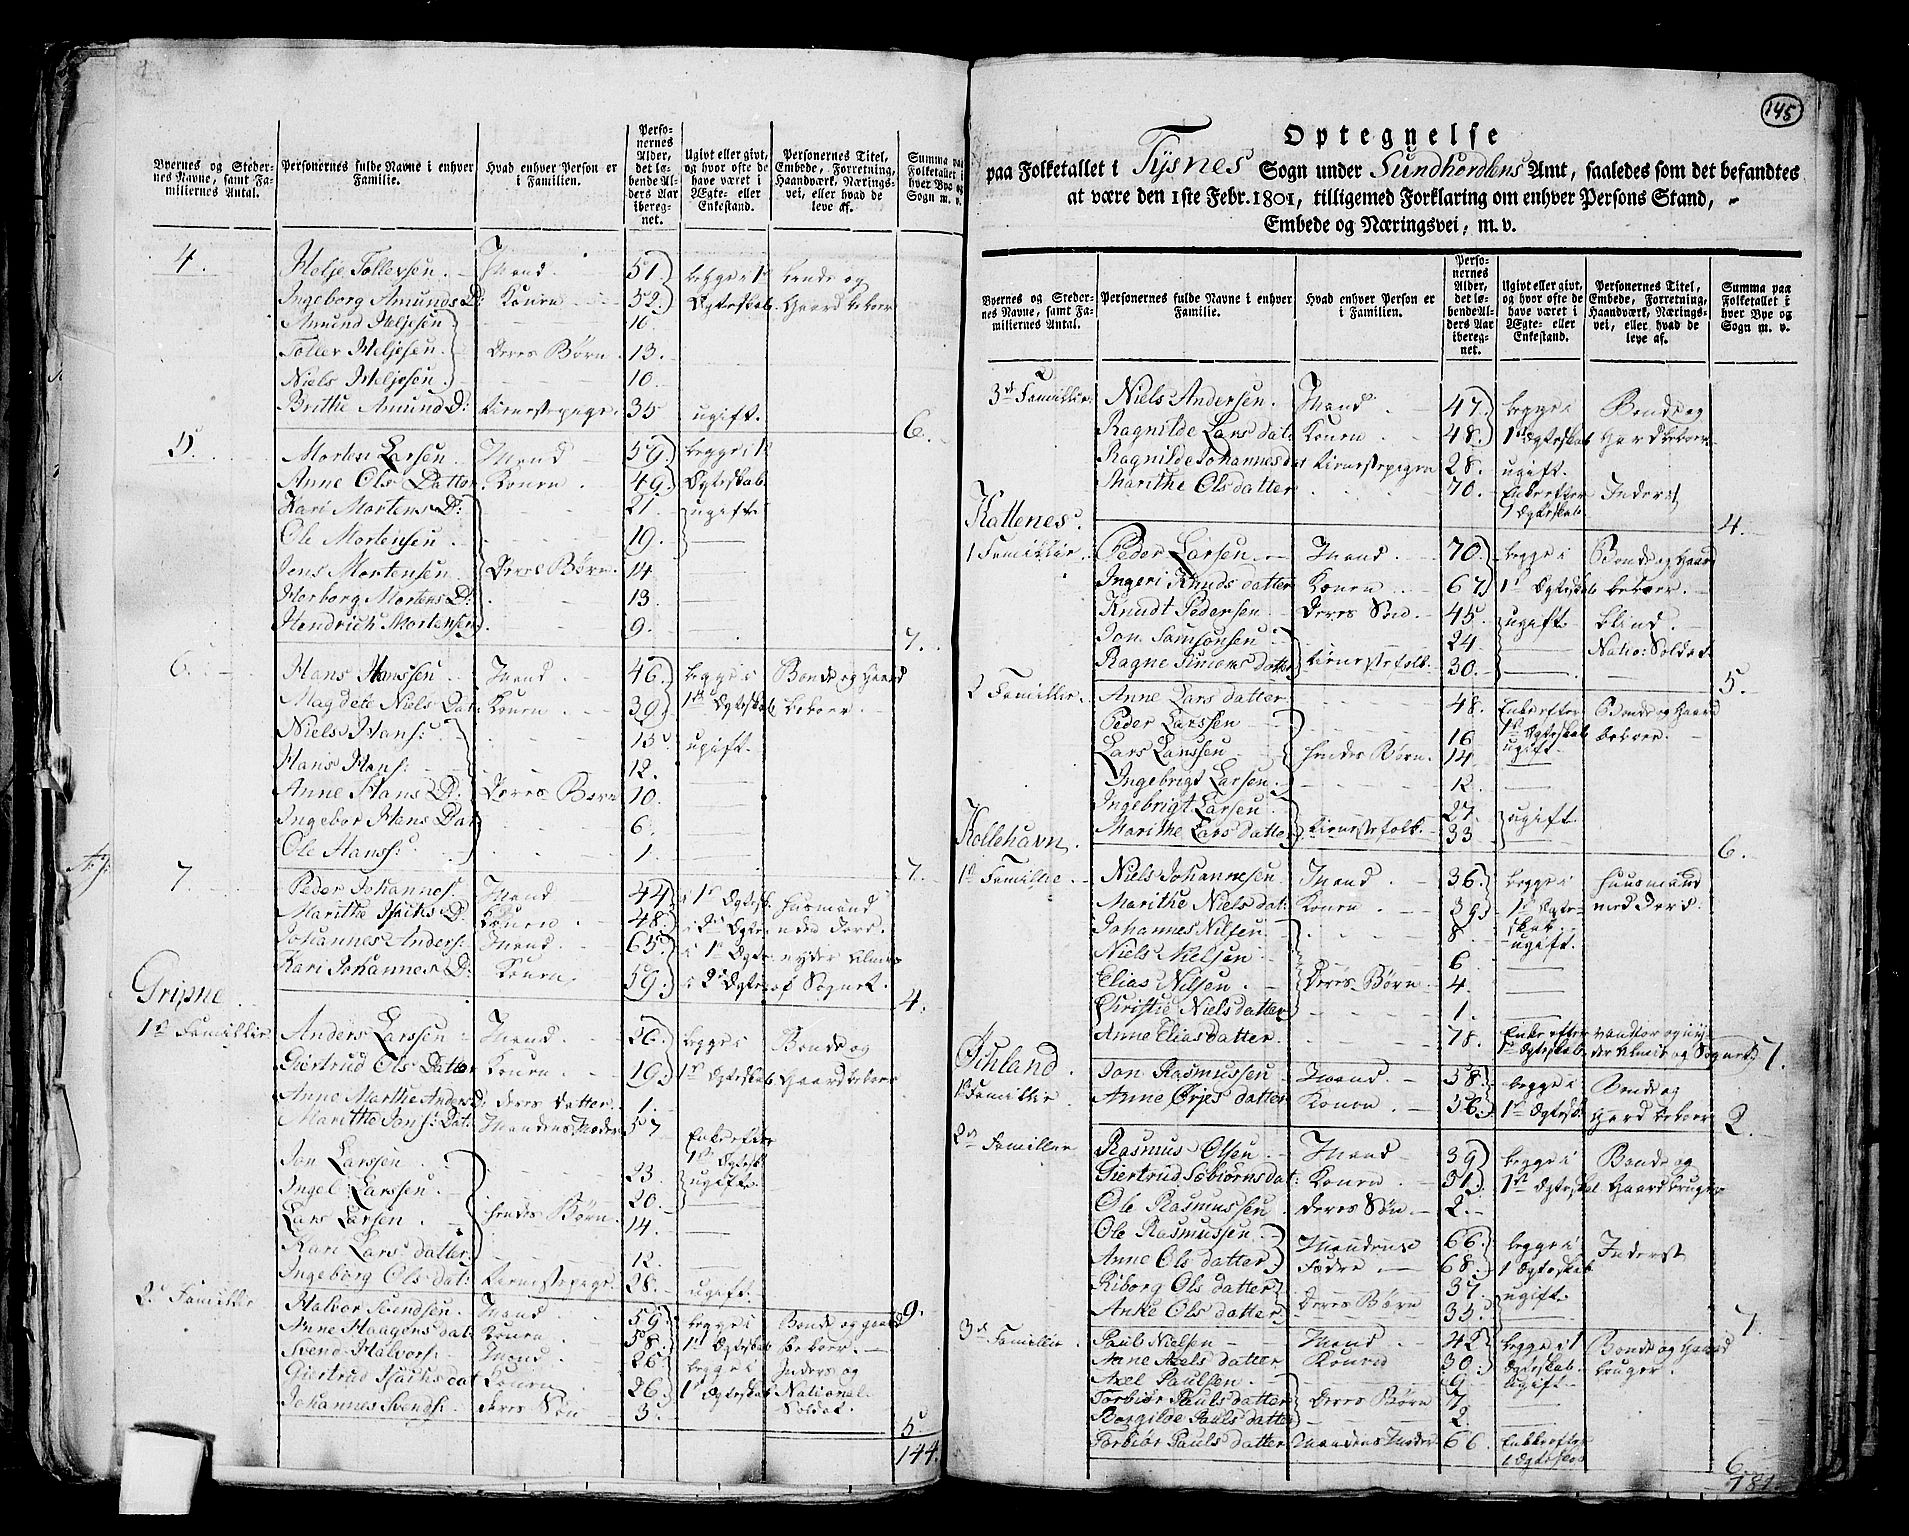 Byernes og Steder-
nes Navne, samt Fa-
miliernes Antal.
Personernes fulde Navne i enhver
Familie.
Hvad enhver Person er
i Familien.
Perso-
nernes
Alder,
det lø-
bende Al-
ders Aar
iberegnet.
Ugivt eller givt,
og hvor ofte de
have været i
Ægte- eller
Enkestand.
Personernes Titel,
Embede, Forretning,
Haandværk, Nærings-
vei, eller hvad de
leve af.
Summa paa
Folketallet i
hver Bye og
Sogn m. v.
4. Helje Tollevsen. Mand. 51. begge i 1ste Bonde og
Ingeborg Amunds D: Konen 52. Ægteskab. Gaardbeboer
Amund Heljesen 16.
Toller Heljesen Deres Børn. 13.
Niels Heljesen 10.
Brithe Amund D: Tienestepige. 35 ugift. 6.
5. Morten Larsen Mand 59. begge i 1ste
Anne Ols Datter Konen. 49. Ægteskab.
Kari Mortens D: 21. ugift
Ole Mortensen 19.
Jens Mortensen Deres Børn. 14
Herborg Mortens D: 13.
Hendrich Mortensen 9. 7.
6. Hans Hanssen Mand 46. begge i Bonde og Gaard
Magdele Niels Dat: Konen 39. 1ste Ægteskab beboer.
Niels Hans: 15. ugift.
Hans Hans: 12.
Anne Hans D: Deres Børn 10.
Ingebor Hans Dat 6.
Ole Hanss: 1. 7.
7. Peder Johannes: Mand 44. i 1ste Ægtesk: Husmand
Marithe Isachs D: Konen. 48. i 2den Ægte med Jord.
Johannes Anders: Mand. 65. i 1ste Ægte nyder Almis
Kari Johannes D: Konen. 59. i 2den Ægte af Sognet. 4.
Gripne
1ste Familie Anders Larssen Mand. 26. begge i Bonde og
Giertrud Ols Datter Konen. 19. 1ste Ægteskab Gaardbeboer
Anne Marthe Anders D: deres datter. 1.
Marithe Jons: Dat: Mandens Moder 57. Enke efter
1ste Ægtesk.
Jon Larssen. 23. ugift
Ingel: Larssen 20.
Lars Larsen hendes Børn. 14.
Kari Lars: datter 12.
Ingeborg Ols dat: Tienestepige. 28. ugift. 9.
2. Familie Halvor Svendsen. Mand. 59. begge i Bonde og gaard
Anne Haagens dat: Konen 58. 1ste Ægteskab beboer.
Svend Halvors: Mand. 26. begge i Inders og
Giertrud Isachs dat Konen. 26. 1ste Ægteskab National
Johannes Svends: deres Søn 3. Soldat. 5.
144.
145
Optegnelse
paa Folketallet i Tysnes Sogn under Sundhordlens Amt, saaledes som det befandtes
at være den 1ste Febr. 1801, tilligemed Forklaring om enhver Persons Stand,
Embede og Næringsvei, m. v.
Byernes og Steder-
nes Navne, samt Fa-
miliernes Antal.
Personernes fulde Navne i enhver
Familie.
Hvad enhver Person er
i Familien.
Perso-
nernes
Alder,
det lø-
bende Al-
ders Aar
iberegnet.
Ugivt eller givt,
og hvor ofte de
have været i
Ægte- eller
Enkestand.
Personernes Titel,
Embede, Forretning,
Haandværk, Nærings-
vei, eller hvad de
leve af.
Summa paa
Folketallet i
hver Bye og
Sogn m. v.
3de Familie. Niels Andersen. Mand. 47. begge i Bonde og
Ragnilde Lars dat: Konen. 48. 1ste Ægteskab Gaardbeboer
Ragnilde Johannes dat Tienestepigen 28. ugift.
Marithe Ols datter 70. Enke efter Inderst
1 Ægteskab. 4.
Kattenes.
1 Familie Peder Larsen. Mand. 70. begge i Bonde og Gaard
Ingeri Knuds datter Konen 67. 1ste Ægteskab beboer.
Knudt Pedersen Deres Søn 45. ugift blind.
Jon Samsonsen 24. Natio: Soldat.
Ragne Simens datter Tienestefolk. 30. 5.
2 Familie. Anne Lars datter 48. Enke efter Bonde og Gaard
Peder Larssen 16. 1ste Ægteskab beboer.
Lars Larssen hendes Børn. 14. ugift
Ingebrigt Larsen. 12.
Ingebrigt Larsen 27. ugift.
Marithe Lars datter Tienestefolk. 33. 6.
Kollehavn.
1ste Familie. Niels Johannesen. Mand. 36. begge i huusmand
Marithe Niels dat: Konen 39. 1ste Ægte- med Jord.
skab
Johannes Nilsen 8. ugift.
Niels Nielsen 6.
Elias Nilsen Deres Børn. 4.
Christie Niels datter 1.
Anne Elias datter. 78. Enke efter vanfør og ny-
1ste Ægteskab. der Almis og Sognet: 7.
Øehland.
1ste Familie Jon Rasmussen Mand. 58. begge i Bonde og
Anne Ørjes datter Konen 56. 1ste Ægtesk. Gaard beboer 2.
2den Familie Rasmus Olsen. Mand. 39. begge i Bonde og
Giertrud Sebiørns dat: Konen. 31. 1ste Ægteskab Gaardbruger
Ole Rasmussen deres Søn. 2.
Ole Rasmussen Mandens 66. begge i Inderst
Anne Ols datter Fædre 68. 1 Ægteskab.
Riborg Ols datter Deres Børn 37. ugift
Anke Ols datter 35. 7.
3de Familie. Paul Nielsen Mand 42 begge i 1 Bonde og Gaard
Anne Axels datter Konen 30. Ægteskab. bruger.
Axel Paulsen 9 ugift
Torbiør Pauls datter Deres Børn 7.
Borgilde Pauls datter 2.
Torbiør Pauls datter Mandens Moder 66. Enke efter
1 Ægteskab 6.
181.